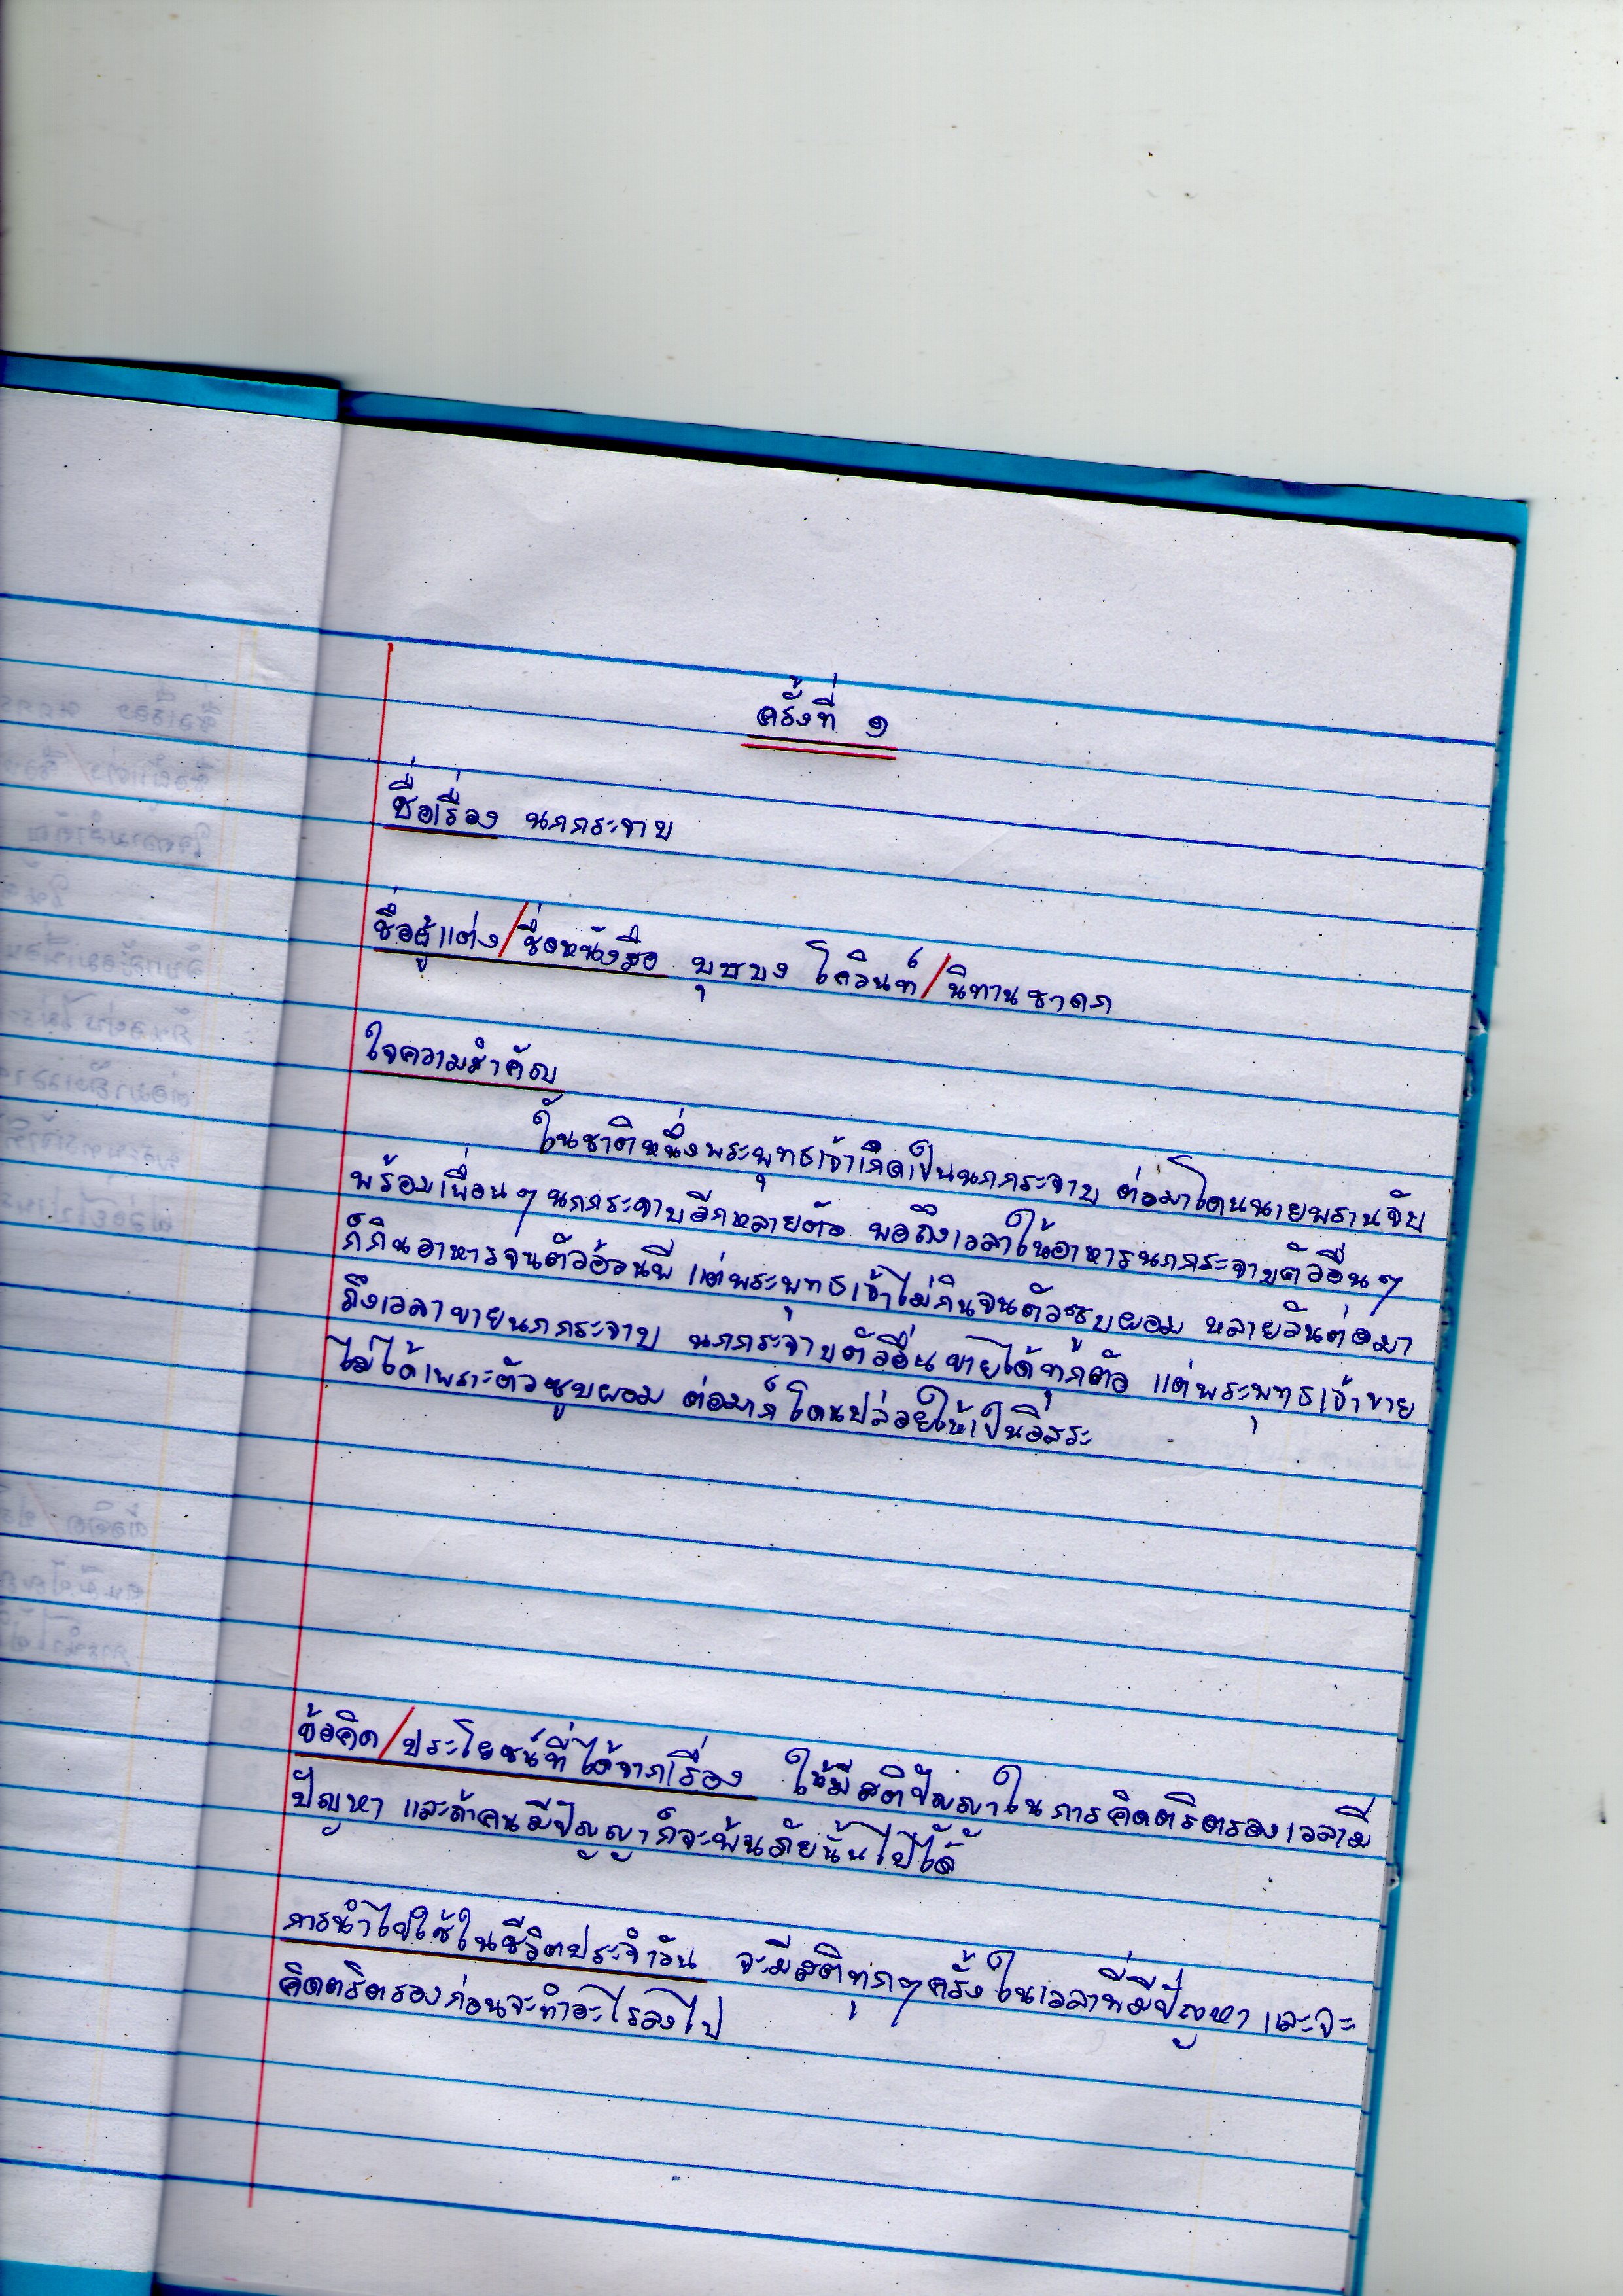 ครั้งที่ ๑
ชื่อเรื่อง นกกระจาบ
ชื่อผู้แต่ง/ชื่อหนังสือ บุชบง โควินท์/นิทานชาดก
ใจความสำคัญ
ในชาติหนึ่งพระพุทธเจ้าเกิดเป็นนกกระจาบ ต่อมาโดนนายพรานจับ
พร้อมเพื่อนๆ นกกระจาบอีกหลายตัว พอถึงเวลาให้อาหารนกกระจาบตัวอื่นๆ
ก็กินอาหารจนตัวอ้วนพี แต่พระพุทธเจ้าไม่กินจนตัวซูบผอม หลายวันต่อมา
ถึงเวลาขายนกกระจาบ นกกระจาบตัวอื่นขายได้ทุกตัว แต่พระพุทธเจ้าขาย
ไม่ได้เพราะตัวซูบผอม ต่อมาก็โดนปล่อยให้เป็นอิสระ
ข้อคิด/ประโยชน์ที่ได้จากเรื่อง ให้มีสติปัญญาในการคิดตริตรองเวลามี
ปัญหา และถ้าคนมีปัญญาก็จะพ้นภัยนั้นไปได้
การนำไปใช้ในชีวิตประจำวัน จะมีสติทุกๆครั้งในเวลาที่มีปัญหา และจะ
คิดตริตรองก่อนจะทำอะไรลงไป